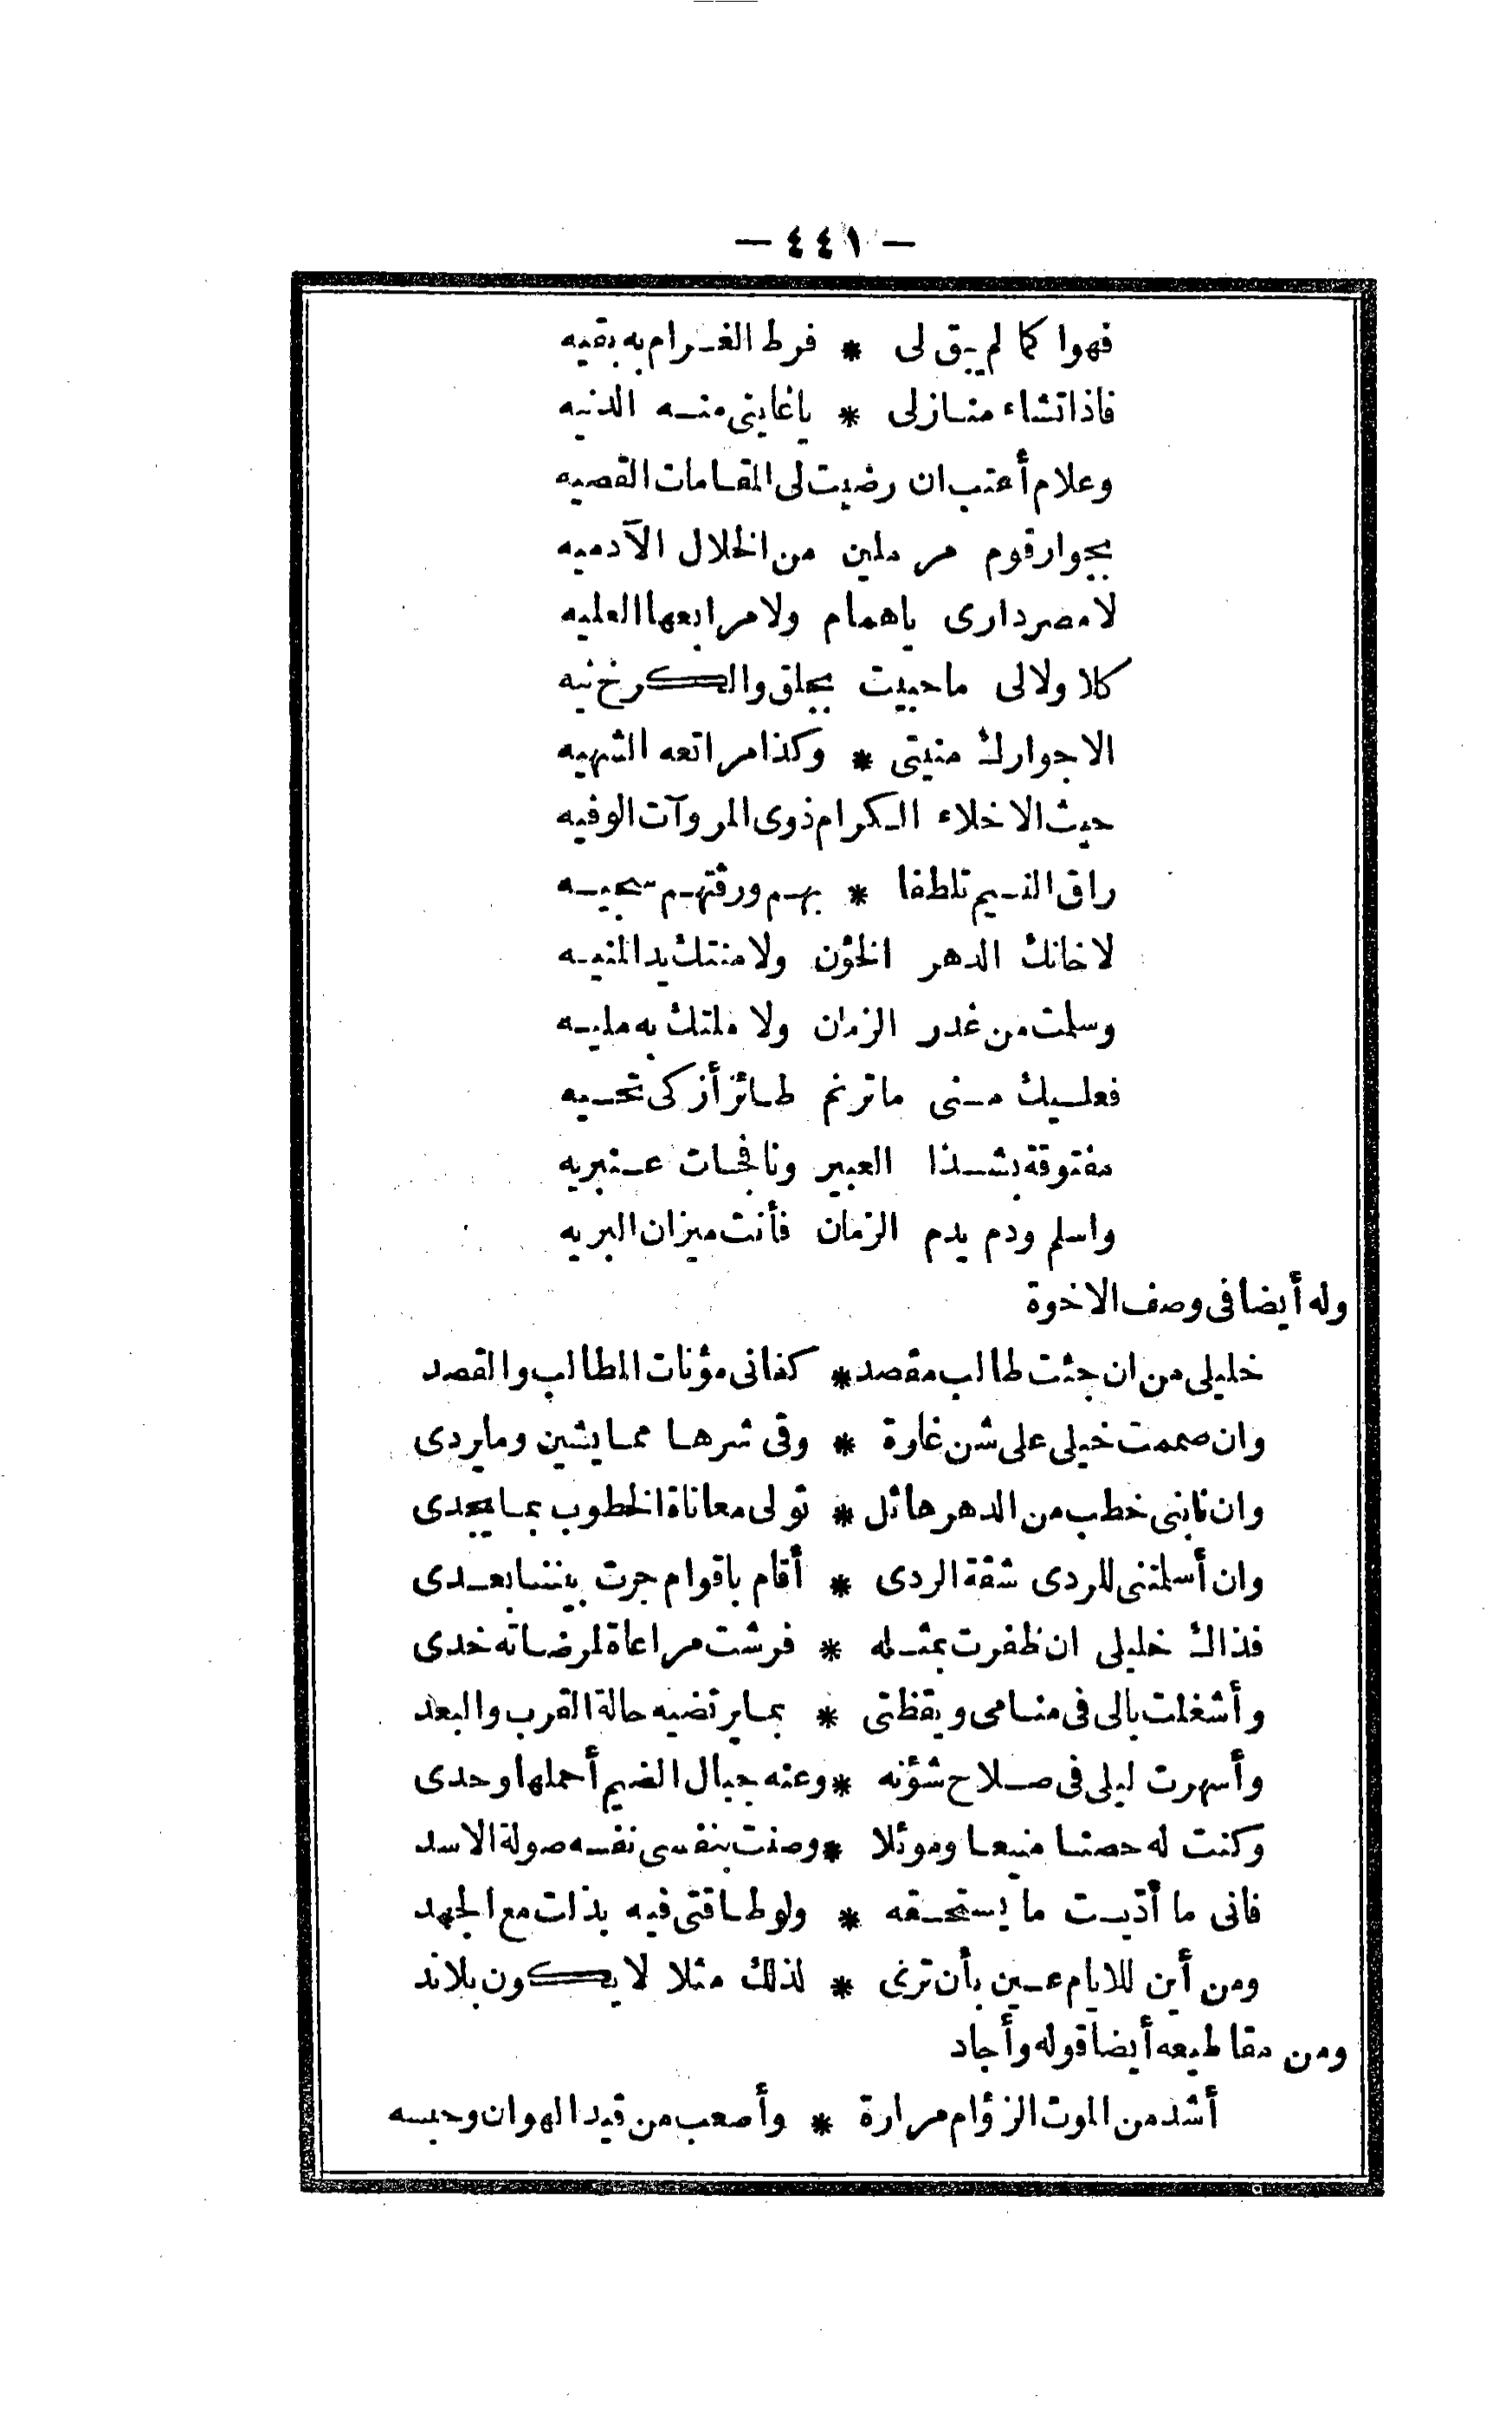 — ٤٤١ —
فهوا كما لم يبق لى * فرط الغرام به بقيه
فاذا تشاء منازلى * ياغايتى منه الدنيه
وعلام أعتب ان رضيت لى المقامات القصيه
بجوار قوم مرملين من الخلال الآدميه
لا مصر دارى ياهمام ولا مرابعها العليه
كلا ولا لى ما حييت بجلق والكرخ نيه
الا جوارك منيتى * وكذا مراتعه الشهيه
حيث الاخلاء الكرام ذوى المروآت الوفيه
راق النسيم تلطفا * بهم ورقتهم سجيه
لا خانك الدهر الخؤن ولا منتك يد المنيه
وسلمت من غدر الزمان ولا ملتك به مليه
فعليك منى ما ترنم طائر أزكى تحيه
مفتوقة بشذا العبير ونافحات عنبريه
واسلم ودم يدم الزمان فأنت ميزان البريه
وله أيضا فى وصف الاخوة
خليلى من ان جئت طالب مقصد * كفانى مؤنات المطالب والقصد
وان صممت خيلى على شن غارة * وقى شرها مما يشين وما يردى
وان نابنى خطب من الدهر هائل * تولى معاناة الخطوب بما يجدى
وان أسلمتنى للردى شقة الردى * أقام باقوام جرت بيننا بعدى
فذاك خليلى ان ظفرت بمثله * فرشت مراعاة لمرضاته خدى
وأشغلت بالى فى منامى ويقظتى * بما يرتضيه حالة القرب والبعد
وأسهرت ليلى فى صلاح شؤنه * وعنه جبال الضيم أحملها وحدى
وكنت له حصنا منيعا وموئلا * وصنت بنفسى نفسه صولة الاسد
فانى ما أدّيت ما يستحقه * ولو طاقتى فيه بذلت مع الجهد
ومن أين للايام عين بأن ترى * لذلك مثلا لا يكون بلا ند
ومن مقاطيعه أيضا قوله وأجاد
أشد من الموت الزؤام مرارة * وأصعب من قيد الهوان وحبسه